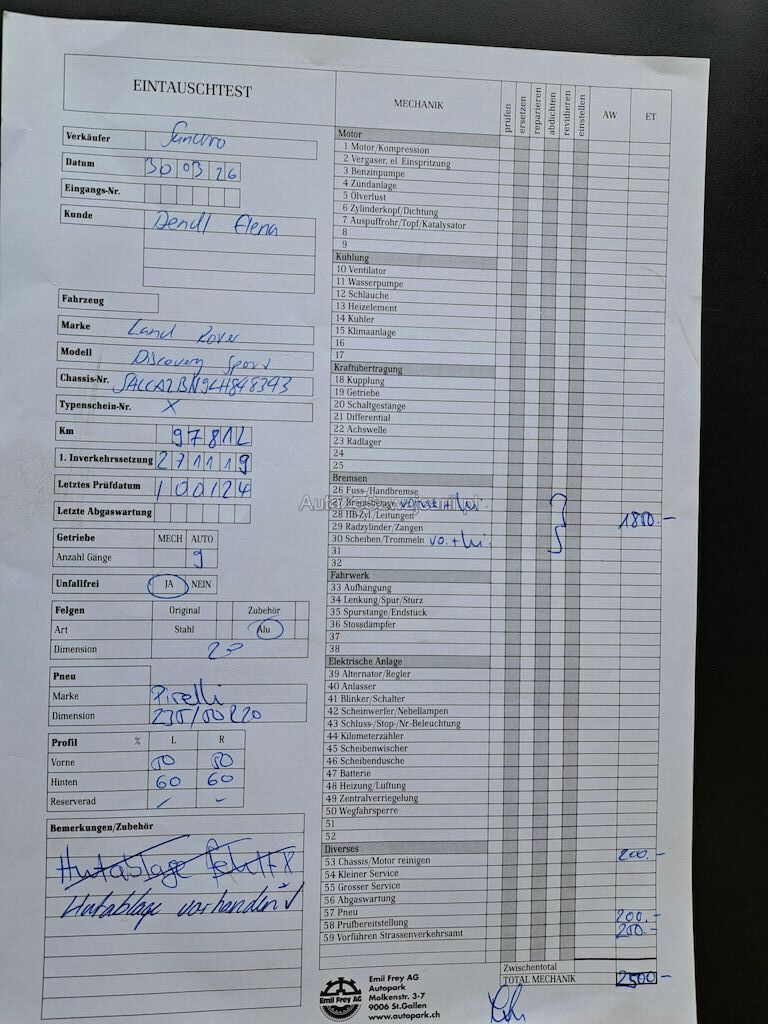 EINTAUSCHTEST
Verkäufer
Datum 30 03 26
Eingangs-Nr.
Kunde Dendl Elena
Fahrzeug
Marke Land Rover
Modell Discovery Sport
Chassis-Nr. SALCA2BN9LH848393
Typenschein-Nr. X
Km 97812
1. Inverkehrssetzung 271119
Letztes Prüfdatum 100124
Letzte Abgaswartung
Getriebe MECH AUTO
Anzahl Gänge 9
Unfallfrei JA NEIN
Felgen Original Zubehör
Art Stahl Alu
Dimension 20
Pneu
Marke Pirelli
Dimension 235/50 R20
Profil % L R
Vorne 50 50
Hinten 60 60
Reserverad - -
Bemerkungen/Zubehör
Hutablage fehlt X
Hutablage vorhanden ✓
MECHANIK prüfen ersetzen reparieren abdichten revidieren einstellen AW ET
Motor
1 Motor/Kompression
2 Vergaser, el. Einspritzung
3 Benzinpumpe
4 Zündanlage
5 Ölverlust
6 Zylinderkopf/Dichtung
7 Auspuffrohr/Topf/Katalysator
8
9
Kühlung
10 Ventilator
11 Wasserpumpe
12 Schläuche
13 Heizelement
14 Kühler
15 Klimaanlage
16
17
Kraftübertragung
18 Kupplung
19 Getriebe
20 Schaltgestänge
21 Differential
22 Achswelle
23 Radlager
24
25
Bremsen
26 Fuss-/Handbremse
27 Bremsbelag vorne + hi.
28 HB-Zyl./Leitungen
29 Radzylinder/Zangen 1800.-
30 Scheiben/Trommeln vo. + hi.
31
32
Fahrwerk
33 Aufhängung
34 Lenkung/Spur/Sturz
35 Spurstange/Endstück
36 Stossdämpfer
37
38
Elektrische Anlage
39 Alternator/Regler
40 Anlasser
41 Blinker/Schalter
42 Scheinwerfer/Nebellampen
43 Schluss-/Stop-/Nr.-Beleuchtung
44 Kilometerzähler
45 Scheibenwischer
46 Scheibendusche
47 Batterie
48 Heizung/Lüftung
49 Zentralverriegelung
50 Wegfahrsperre
51
52
Diverses
53 Chassis/Motor reinigen 200.-
54 Kleiner Service
55 Grosser Service
56 Abgaswartung
57 Pneu
58 Prüfbereitstellung 200.-
59 Vorführen Strassenverkehrsamt 200.-
Zwischentotal
TOTAL MECHANIK 2500.-
Emil Frey AG
Emil Frey AG
Autopark
Molkenstr. 3-7
9006 St.Gallen
www.autopark.ch